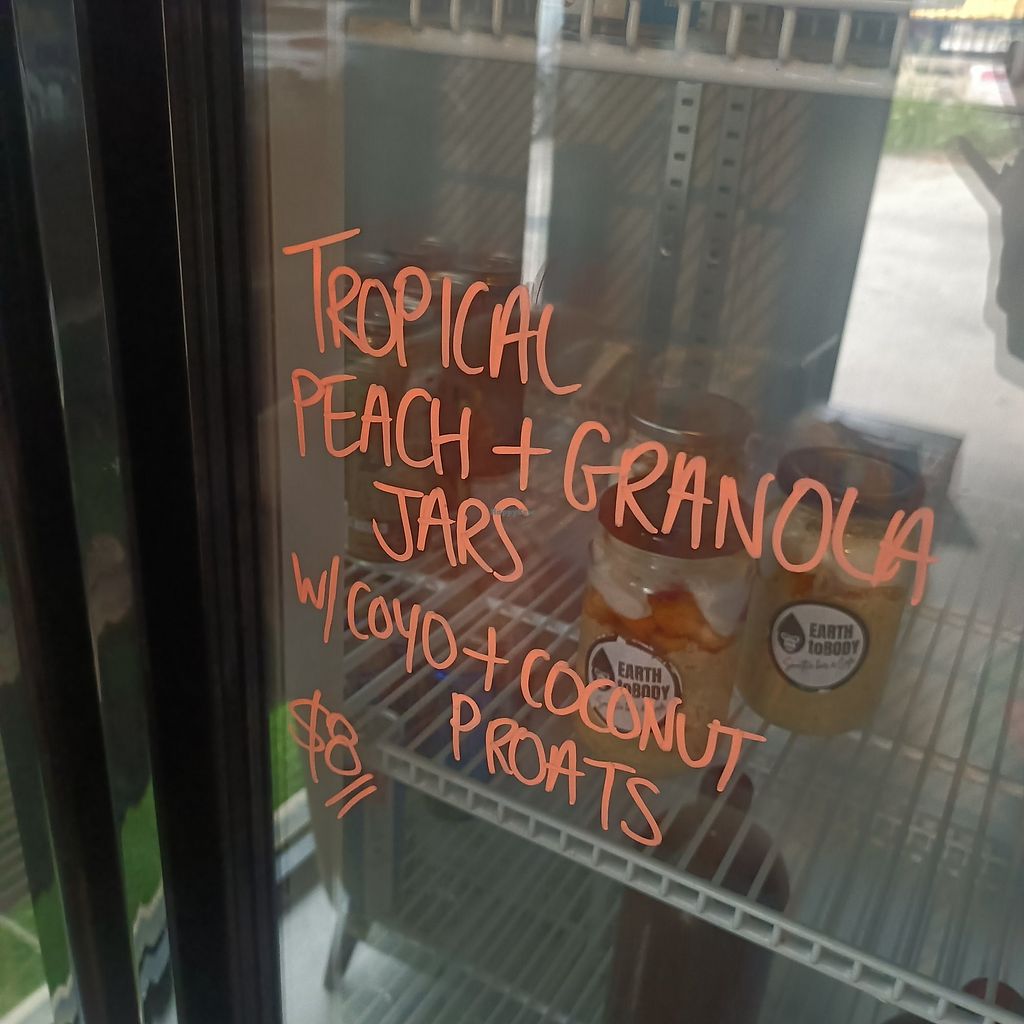 TROPICAL
PEACH + GRANOLA
JARS
W/ COYO + COCONUT
PROATS
$8
EARTH
toBODY
EARTH
toBODY
Smoothie Bar & Cafe